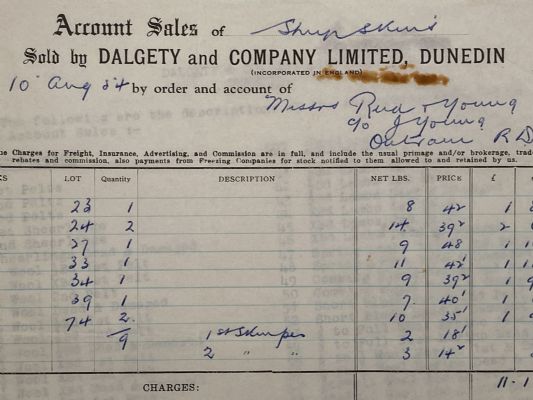 Account Sales of Sheep Skins
Sold by DALGETY and COMPANY LIMITED, DUNEDIN
(INCORPORATED IN ENGLAND)
10 Aug 54 by order and account of
Messrs & Young
c/o J Young
Outram R D
Charges for Freight, Insurance, Advertising, and Commission are in full, and include the usual primage and/or brokerage,
rebates and commission, also payments from Freezing Companies for stock notified to them allowed to and retained by us.
LOT Quantity DESCRIPTION NET LBS. PRICE £
23 1 8 42 1
24 2 14 39² 2
27 1 9 48 1
33 1 11 42¹ 1
34 1 9 39² 1
39 1 7 40¹ 1
74 2 10 35¹ 1
9 1st 2 18¹
2 " " 3 14²
CHARGES: 11-1